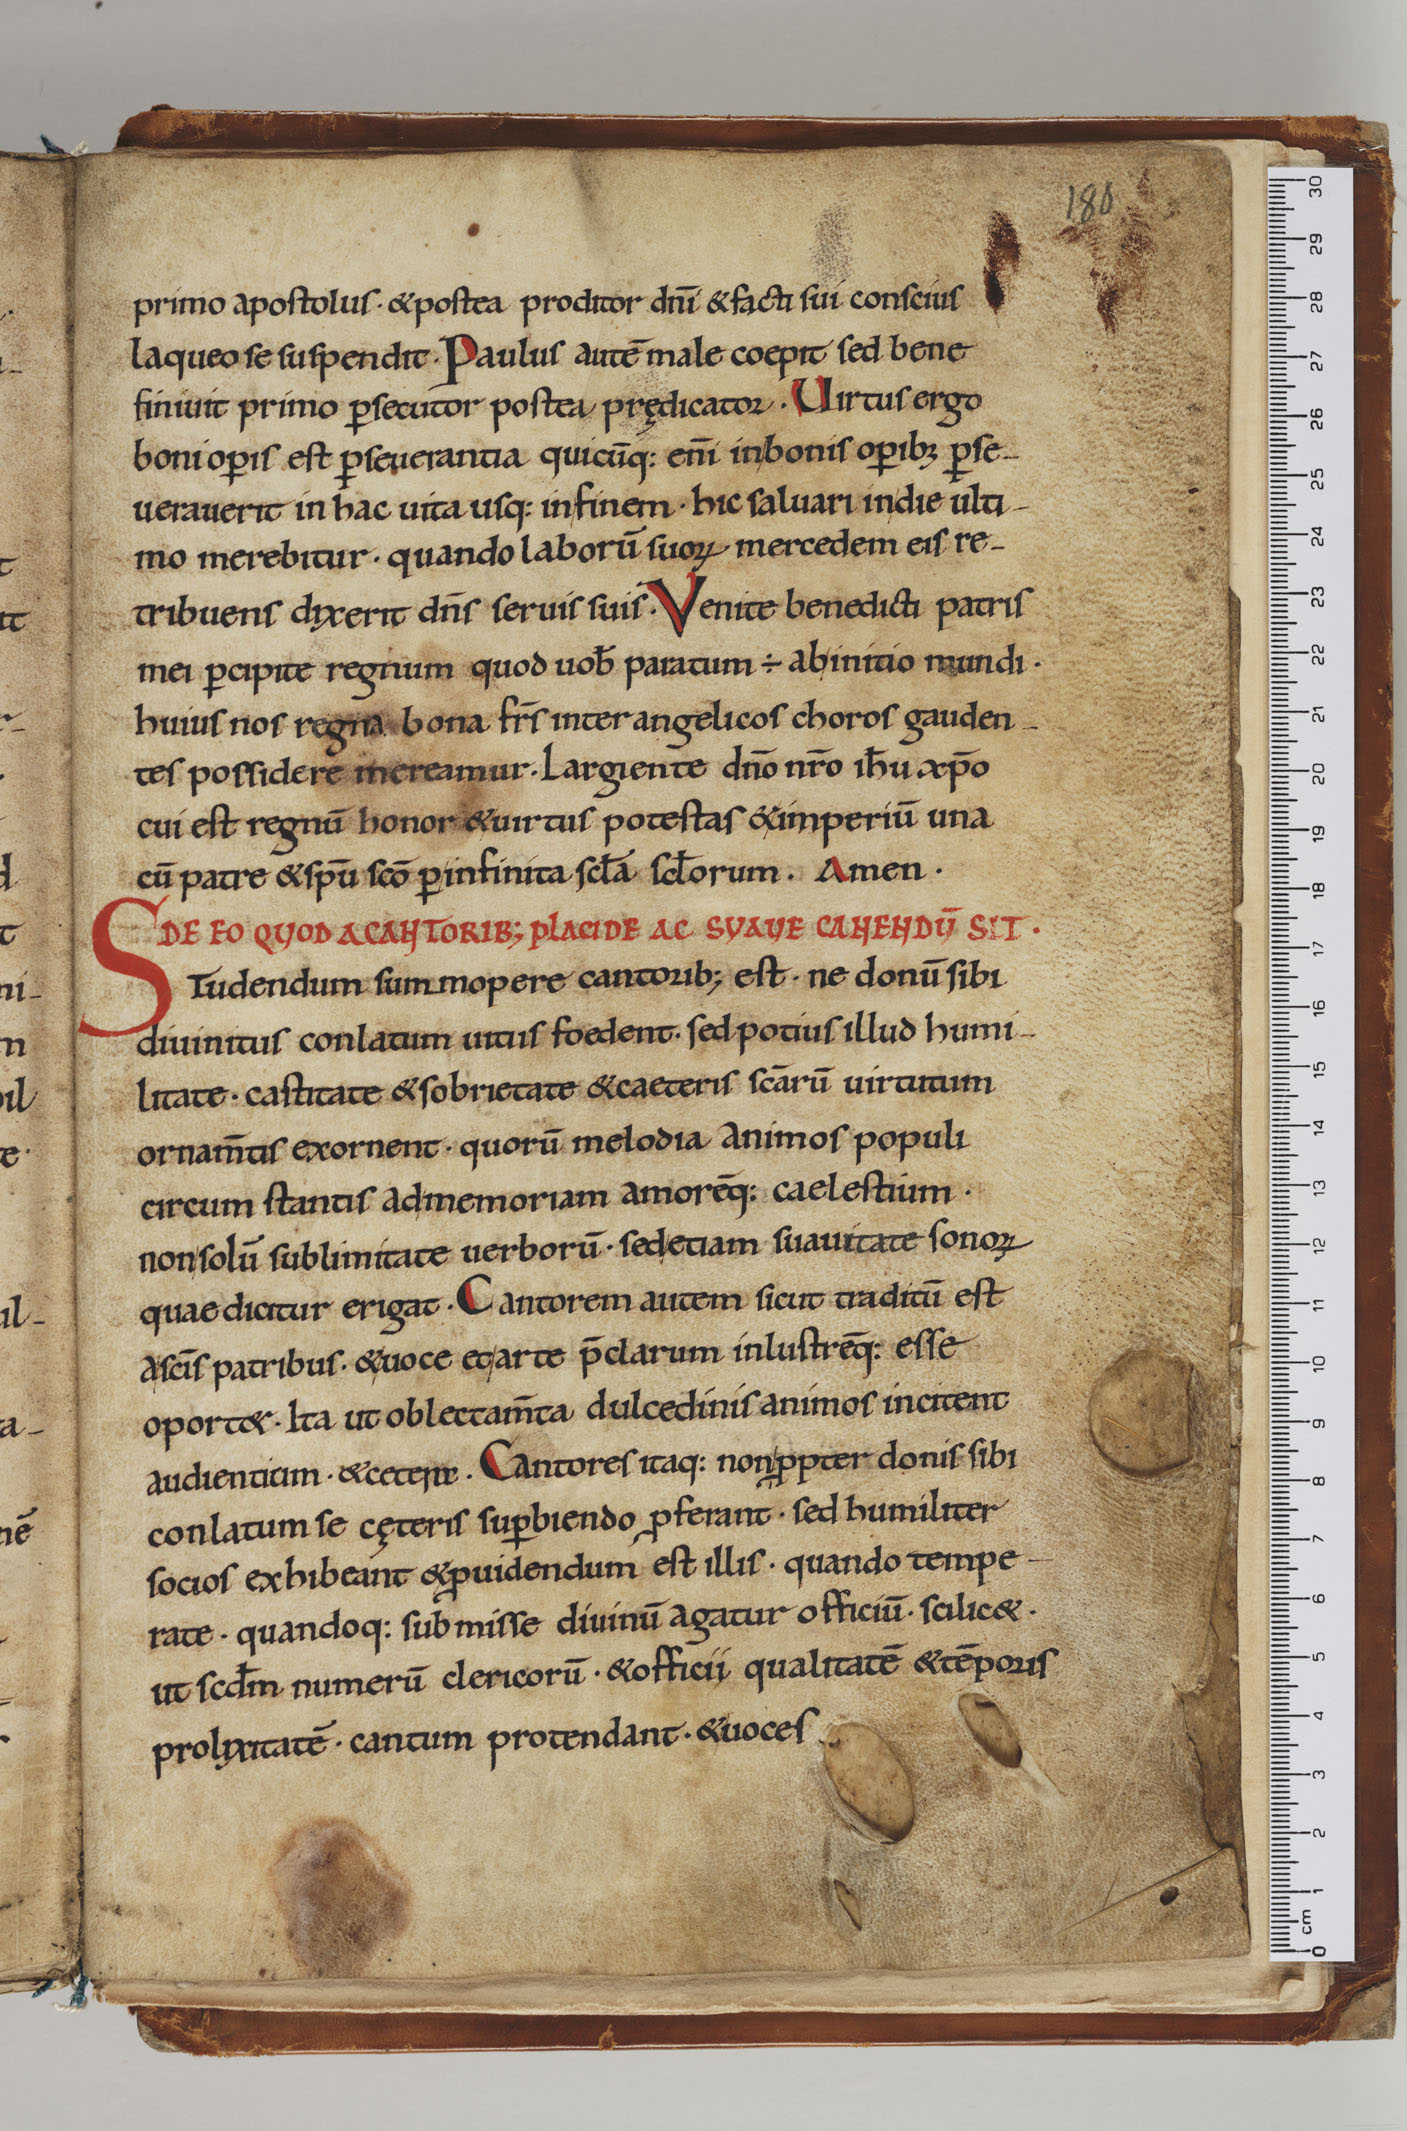 180
primo apostolus · & postea proditor dnī & facti sui conscius
laqueo se suspendit · Paulus autē male coepit sed bene
finiuit primo ꝑsecutor postea prędicator · Uirtus ergo
boni oꝑis est ꝑseuerantia quicūq: enī in bonis oꝑibꝫ ꝑse-
uerauerit in hac uita usq: in finem · hic saluari in die ulti-
mo merebitur · quando laborū suoꝝ mercedem eis re-
tribuens dixerit dn̄s seruis suis · Venite benedicti patris
mei ꝑcipite regnum quod uob̄ paratum ÷ ab initio mundi ·
huius nos regna bona fr̄s inter angelicos choros gauden-
tes possidere mereamur · Largiente dn̄o nr̄o ih̄u xp̄o
cui est regnū honor & uirtus potestas & imperiū una
cū patre & sp̄u scō ꝑ infinita scl̄a scl̄orum . Amen ·
DE EO QUOD A CANTORIB; placide ac suaue canendū sit ·
STudendum summopere cantorib; est · ne donū sibi
diuinitus conlatum uitiis foedent · sed potius illud humi-
litate · castitate & sobrietate & caeteris scārū uirtutum
ornam̄tis exornent · quorū melodia animos populi
circum stantis ad memoriam amorēq: caelestium ·
non solū sublimitate uerborū · sed etiam suauitate sonoꝝ
quae dicitur erigat · Cantorem autem sicut traditū est
a scīs patribus · & uoce et arte p̄clarum inlustrēq: esse
oport& · Ita ut oblectam̄ta dulcedinis animos incitent
audientium · & cetere . Cantores itaq: non ꝓpter donis sibi
conlatum se cęteris suꝑbiendo ꝓferant · sed humiliter
socios exhibeant & ꝓuidendum est illis · quando tempe-
rate · quandoq: submisse diuinū agatur officiū · scilic& ·
ut scdm̄ numerū clericorū · & officii qualitatē & tēporis
prolixitatē · cantum protendant · & uoces